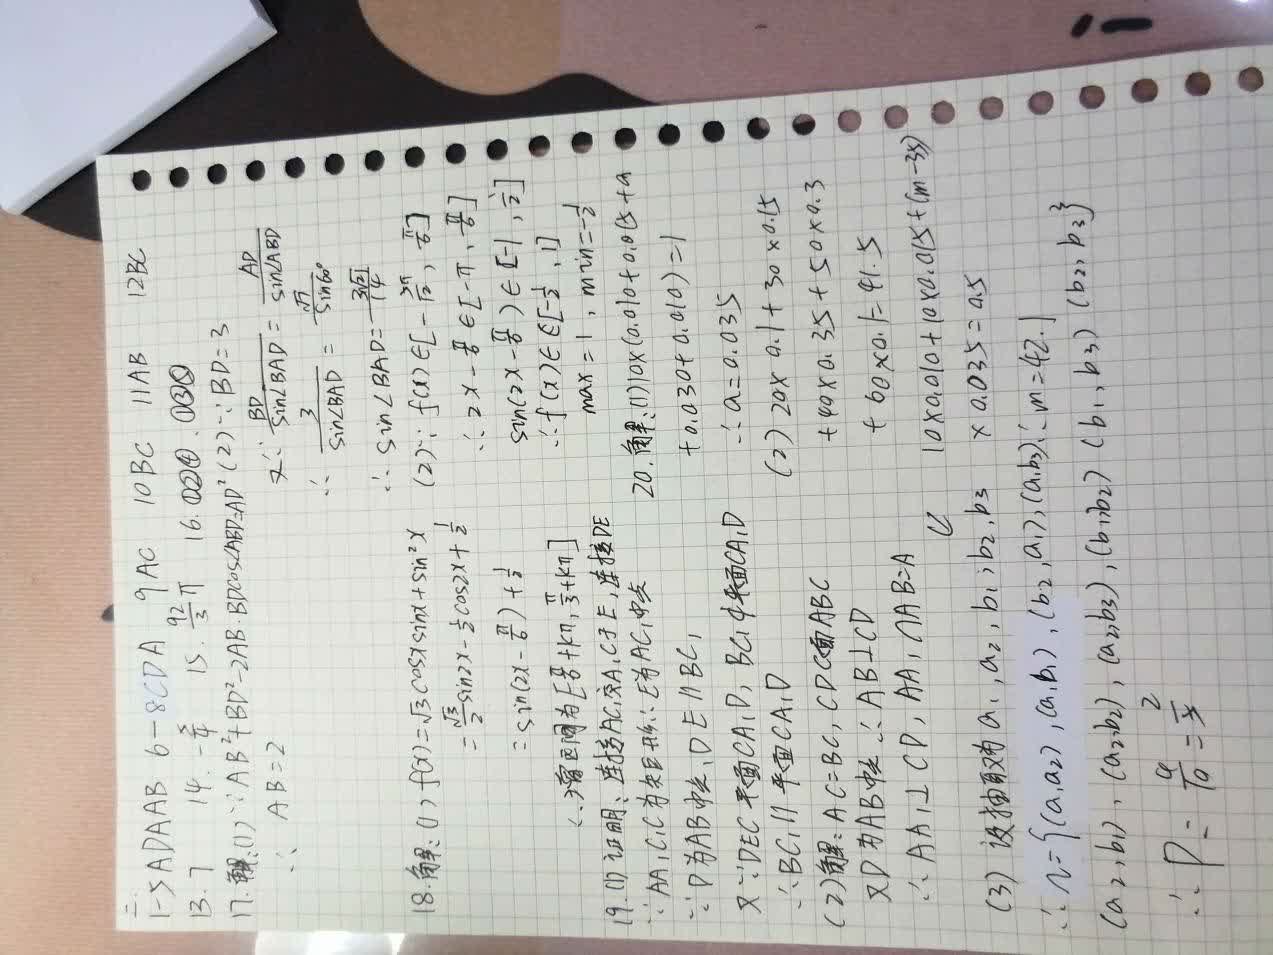 二.
1-5 ADAAB 6-8CDA 9AC 10BC 11AB 12BC
13. 7 14. -5/4 15. 92/3 π 16.
17.解:(1)∵AB²+BD²-2AB·BDcos∠ABD=AD²
∴ AB=2
(2)∵BD=3
又∵ BD/sin∠BAD = AD/sin∠ABD
∴ 3/sin∠BAD = √7/sin60°
∴ sin∠BAD = 3√21/14
18.解:(1)f(x)=√3cosxsinx+sin²x
=√3/2 sin2x-1/2 cos2x+1/2
=sin(2x-π/6)+1/2
∴增区间为[-π/6+kπ, π/3+kπ]
(2)∵f(x)∈[-5π/12, π/6]
∴2x-π/6∈[-π, π/6]
sin(2x-π/6)∈[-1, 1/2]
∴f(x)∈[-1/2, 1]
max=1, min=-1/2
19.(1)证明:连接AC₁交A₁C于E,连接DE
∵AA₁C₁C为矩形∴E为AC₁中点
∵D为AB中点,DE∥BC₁
又∵DE⊂平面CA₁D, BC₁⊄平面CA₁D
∴BC₁∥平面CA₁D
(2)解:AC=BC, CD⊂面ABC
又D为AB中点∴AB⊥CD
∴AA₁⊥CD, AA₁∩AB=A
20.解:(1)10×(0.010+0.015+a
+0.030+0.010)=1
∴a=0.035
(2)20×0.1+30×0.15
+40×0.35+50×0.3
+60×0.1=41.5
10×0.010+10×0.015+(m-35)
×0.035=0.5
∴m=42.1
(3)设抽取为a₁,a₂,b₁,b₂,b₃
∴Ω={(a₁a₂),(a₁b₁),(b₂,a₁),(a₁b₃)
(a₂,b₁),(a₂b₂),(a₂b₃),(b₁b₂)(b₁,b₃)(b₂,b₃)}
∴P=4/10=2/5